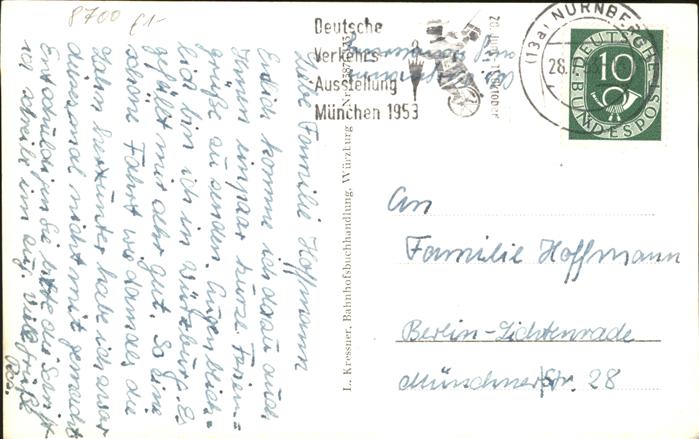 8700 81-
Deutsche
Verkehrs
Ausstellung
München 1953
20. Juni
Oktober
(13a) NÜRNBE
28.
DEUTSCHE
BUNDESPOST
10
L. Kressner, Bahnhofsbuchhandlung, Würzburg
Liebe Familie Hoffmann
Endlich komme ich dazu auch
Ihnen ein paar kurze Ferien=
grüße zu senden. Augenblick=
lich bin ich in Würzburg. Es
gefällt mir sehr gut. So eine
schöne Fahrt wie damals die
Jahre herunter habe ich zwar
diesmal nicht mit gemacht
Entschuldigen Sie bitte die Schrift
ich schreibe im Zug. Viele Grüße
An
Familie Hoffmann
Berlin-Lichtenrade
Münchner Str. 28